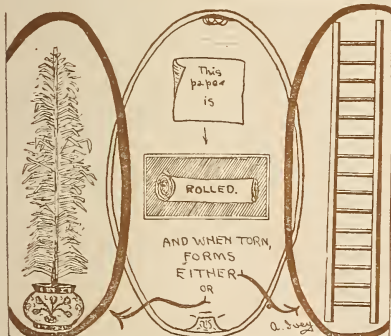 This
paper
is
ROLLED.
AND WHEN TORN,
FORMS
EITHER
OR